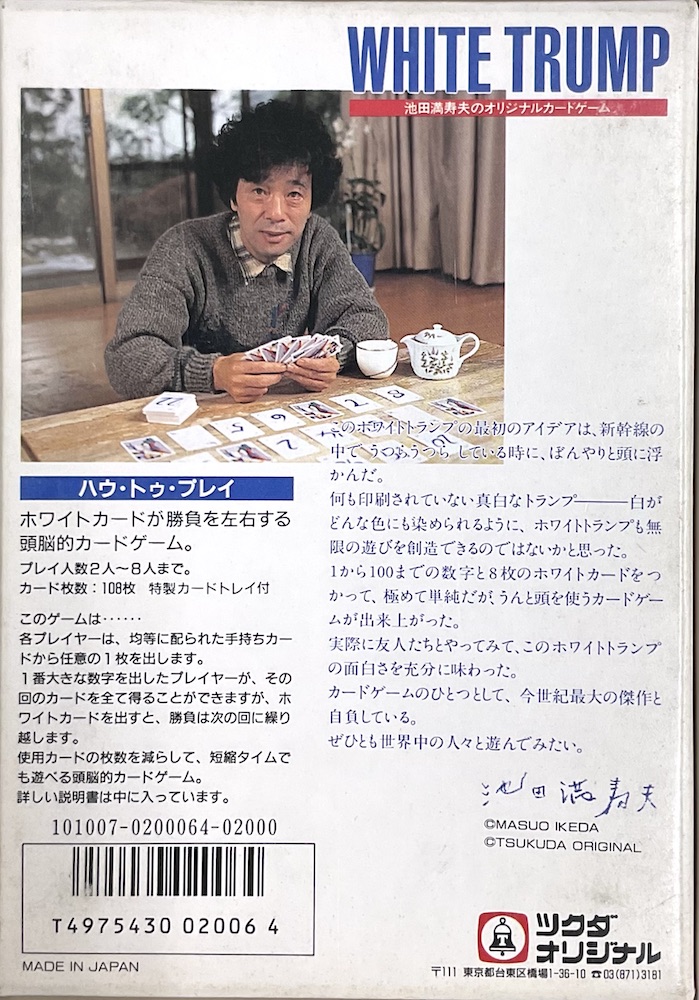 WHITE TRUMP
池田満寿夫のオリジナルカードゲーム
このホワイトトランプの最初のアイデアは、新幹線の
中でうつらうつらしている時に、ぼんやりと頭に浮
かんだ。
何も印刷されていない真白なトランプ———白が
どんな色にも染められるように、ホワイトトランプも無
限の遊びを創造できるのではないかと思った。
1から100までの数字と8枚のホワイトカードをつ
かって、極めて単純だが、うんと頭を使うカードゲー
ムが出来上がった。
実際に友人たちとやってみて、このホワイトトランプ
の面白さを充分に味わった。
カードゲームのひとつとして、今世紀最大の傑作と
自負している。
ぜひとも世界中の人々と遊んでみたい。
池田満寿夫
©MASUO IKEDA
©TSUKUDA ORIGINAL
ハウ・トゥ・プレイ
ホワイトカードが勝負を左右する
頭脳的カードゲーム。
プレイ人数2人〜8人まで。
カード枚数：108枚 特製カードトレイ付
このゲームは‥‥‥
各プレイヤーは、均等に配られた手持ちカー
ドから任意の1枚を出します。
1番大きな数字を出したプレイヤーが、その
回のカードを全て得ることができますが、ホ
ワイトカードを出すと、勝負は次の回に繰り
越します。
使用カードの枚数を減らして、短縮タイムで
も遊べる頭脳的カードゲーム。
詳しい説明書は中に入っています。
101007-0200064-02000
T4975430 02006 4
MADE IN JAPAN
ツクダ
オリジナル
〒111 東京都台東区橋場1-36-10 ☎03(871)3181